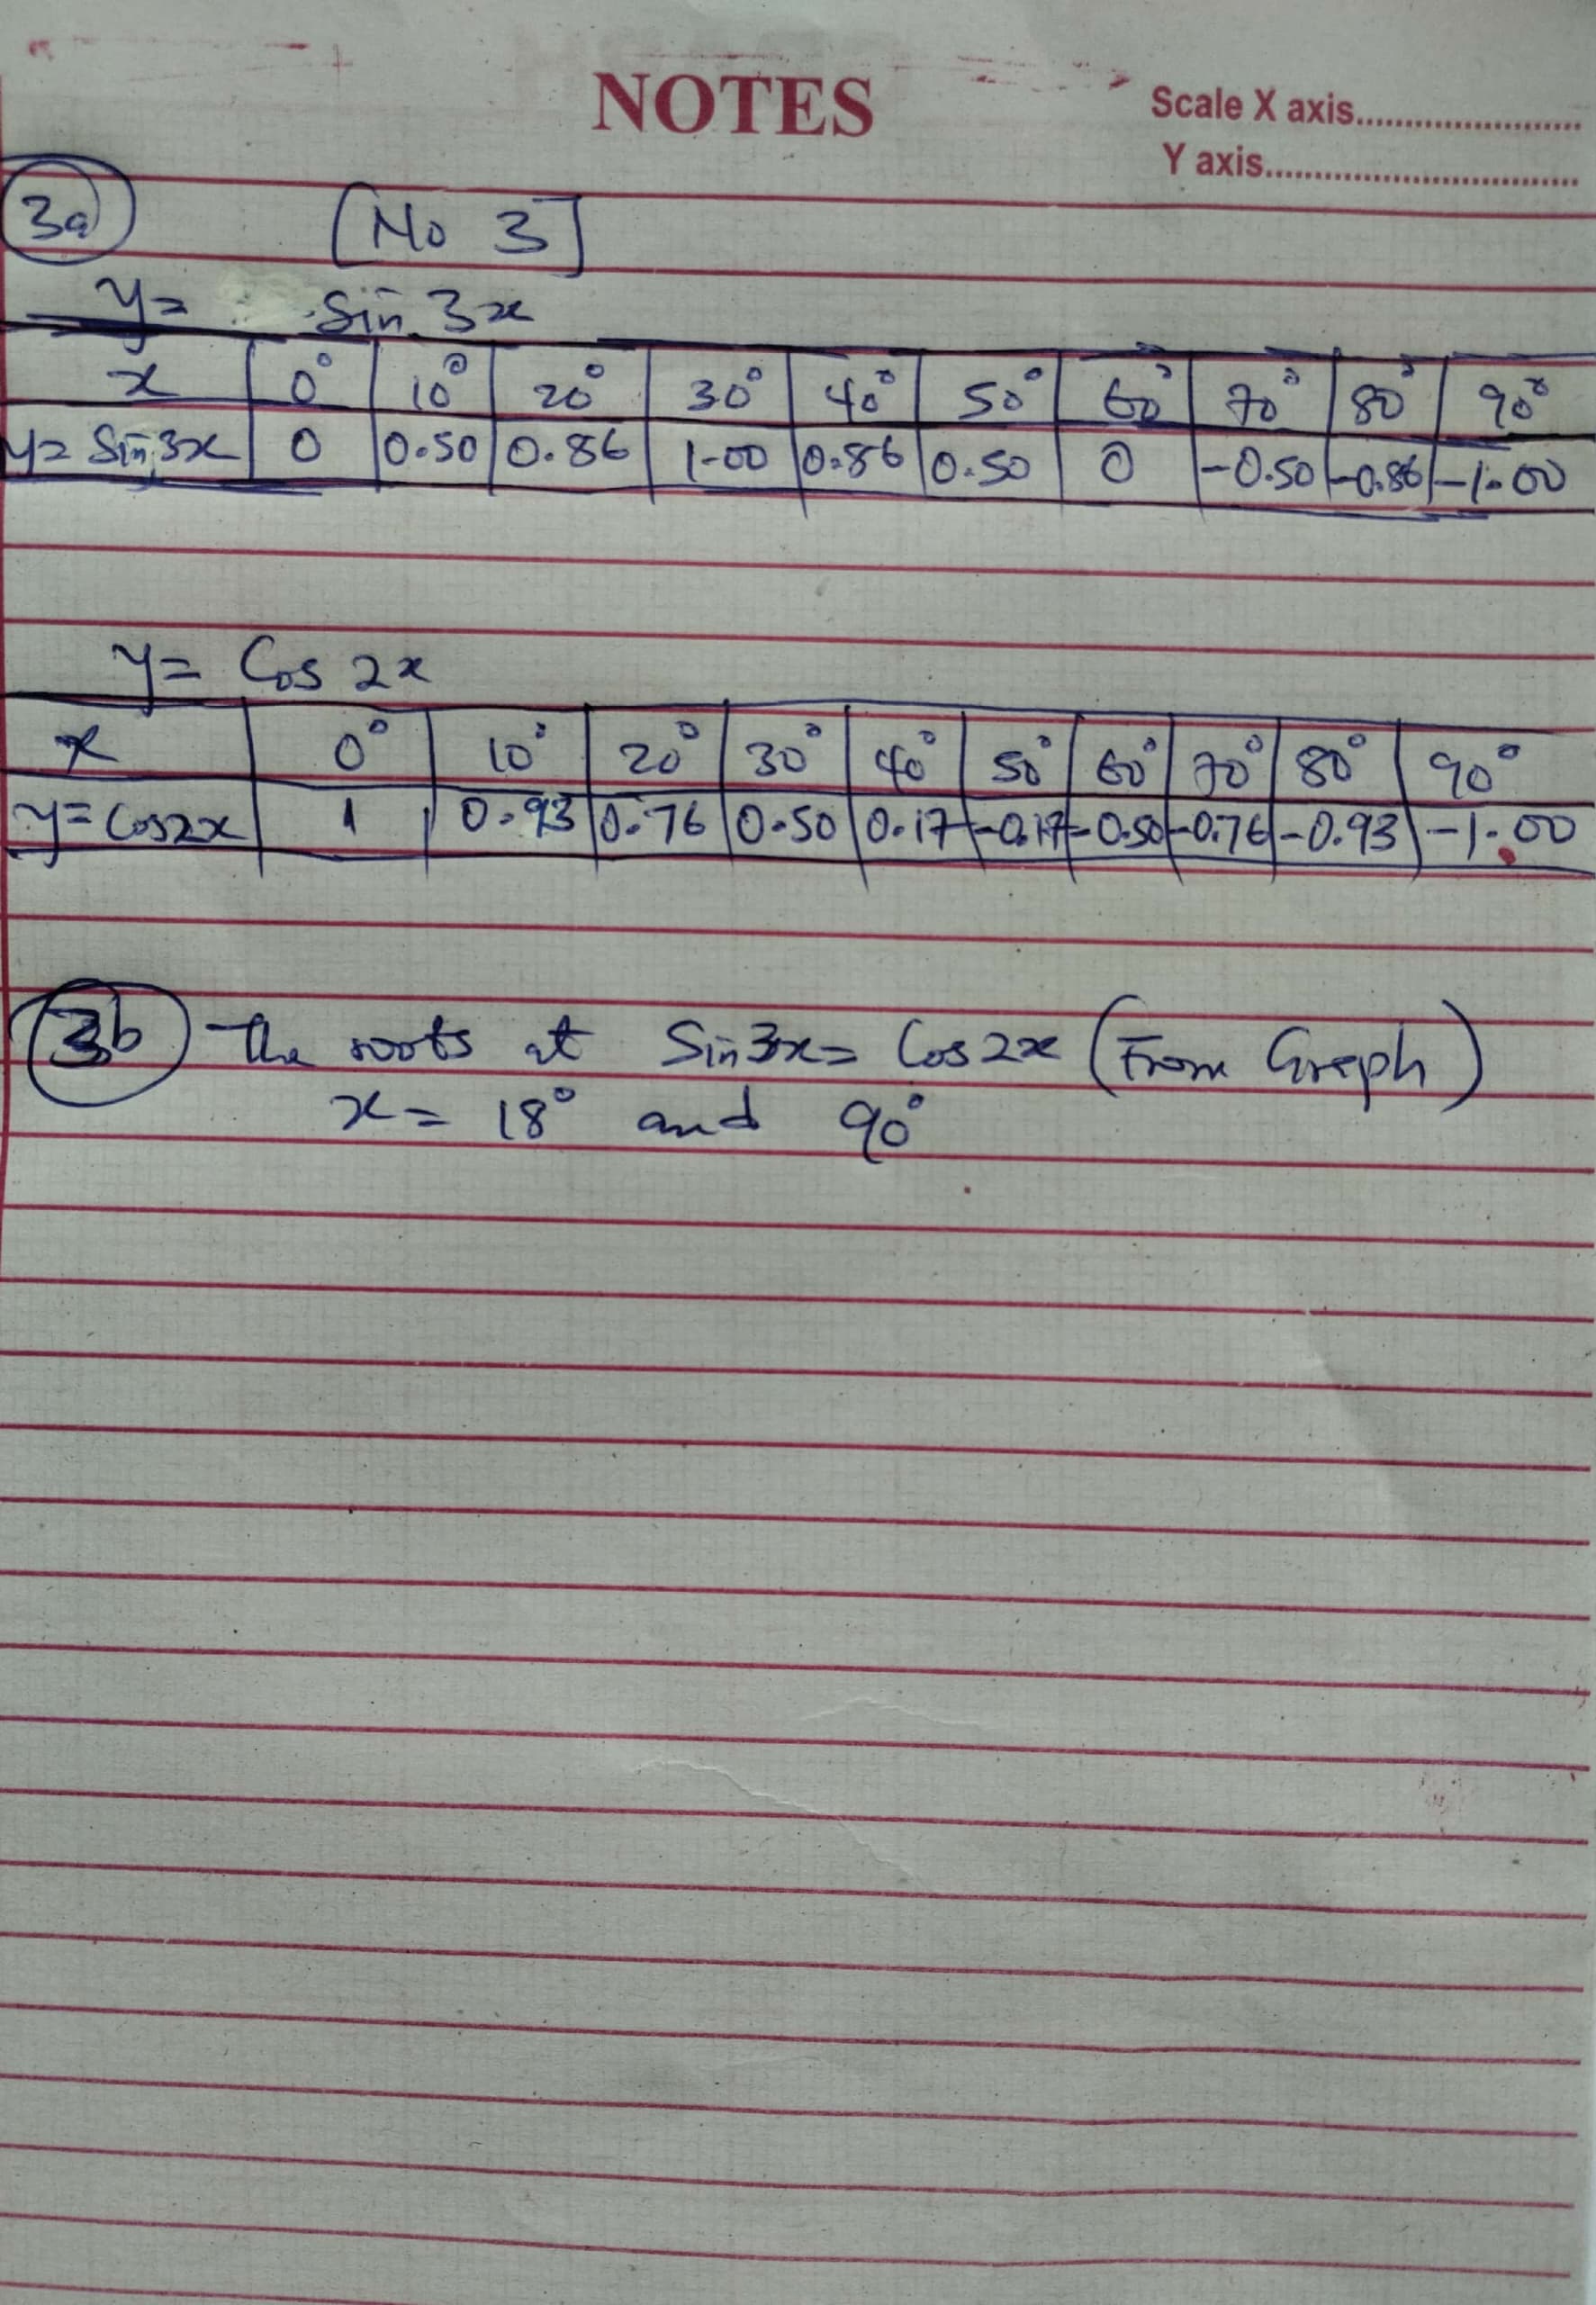 NOTES
Scale X axis........................
Y axis.................................
3a [No 3]
y= Sin 3x
x 0° 10° 20° 30° 40° 50° 60° 70° 80° 90°
y= Sin 3x 0 0.50 0.86 1.00 0.86 0.50 0 -0.50 -0.86 -1.00
y= Cos 2x
x 0° 10° 20° 30° 40° 50° 60° 70° 80° 90°
y= Cos2x 1 0.93 0.76 0.50 0.17 -0.17 -0.50 -0.76 -0.93 -1.00
3b The roots at Sin3x= Cos2x (From Graph)
x= 18° and 90°